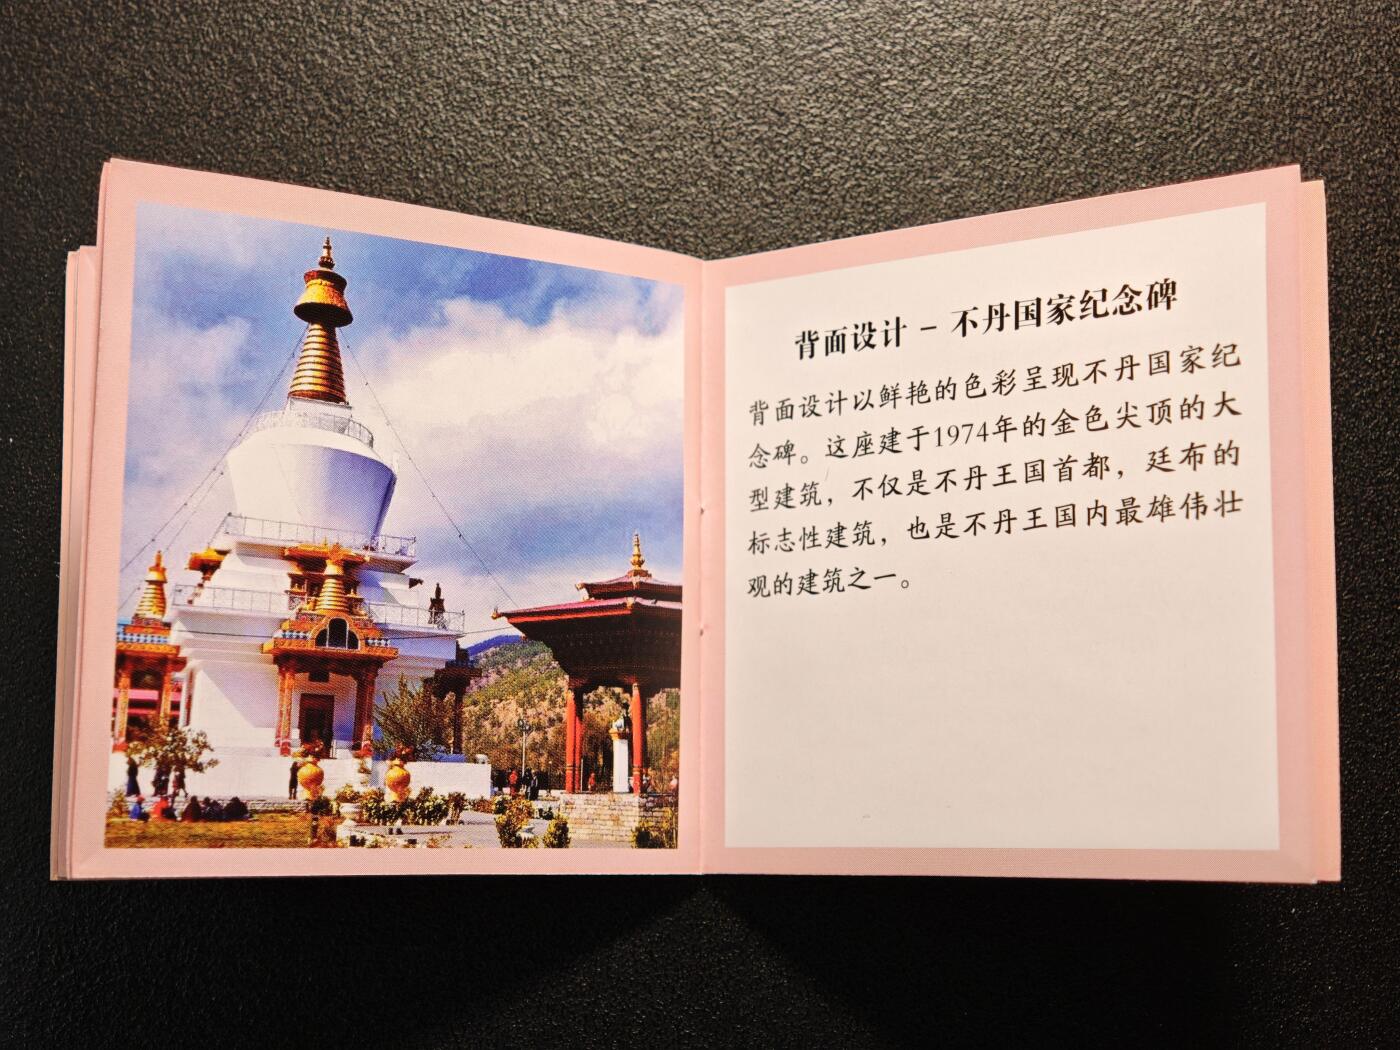 背面设计 – 不丹国家纪念碑
背面设计以鲜艳的色彩呈现不丹国家纪
念碑。这座建于1974年的金色尖顶的大
型建筑，不仅是不丹王国首都，廷布的
标志性建筑，也是不丹王国内最雄伟壮
观的建筑之一。